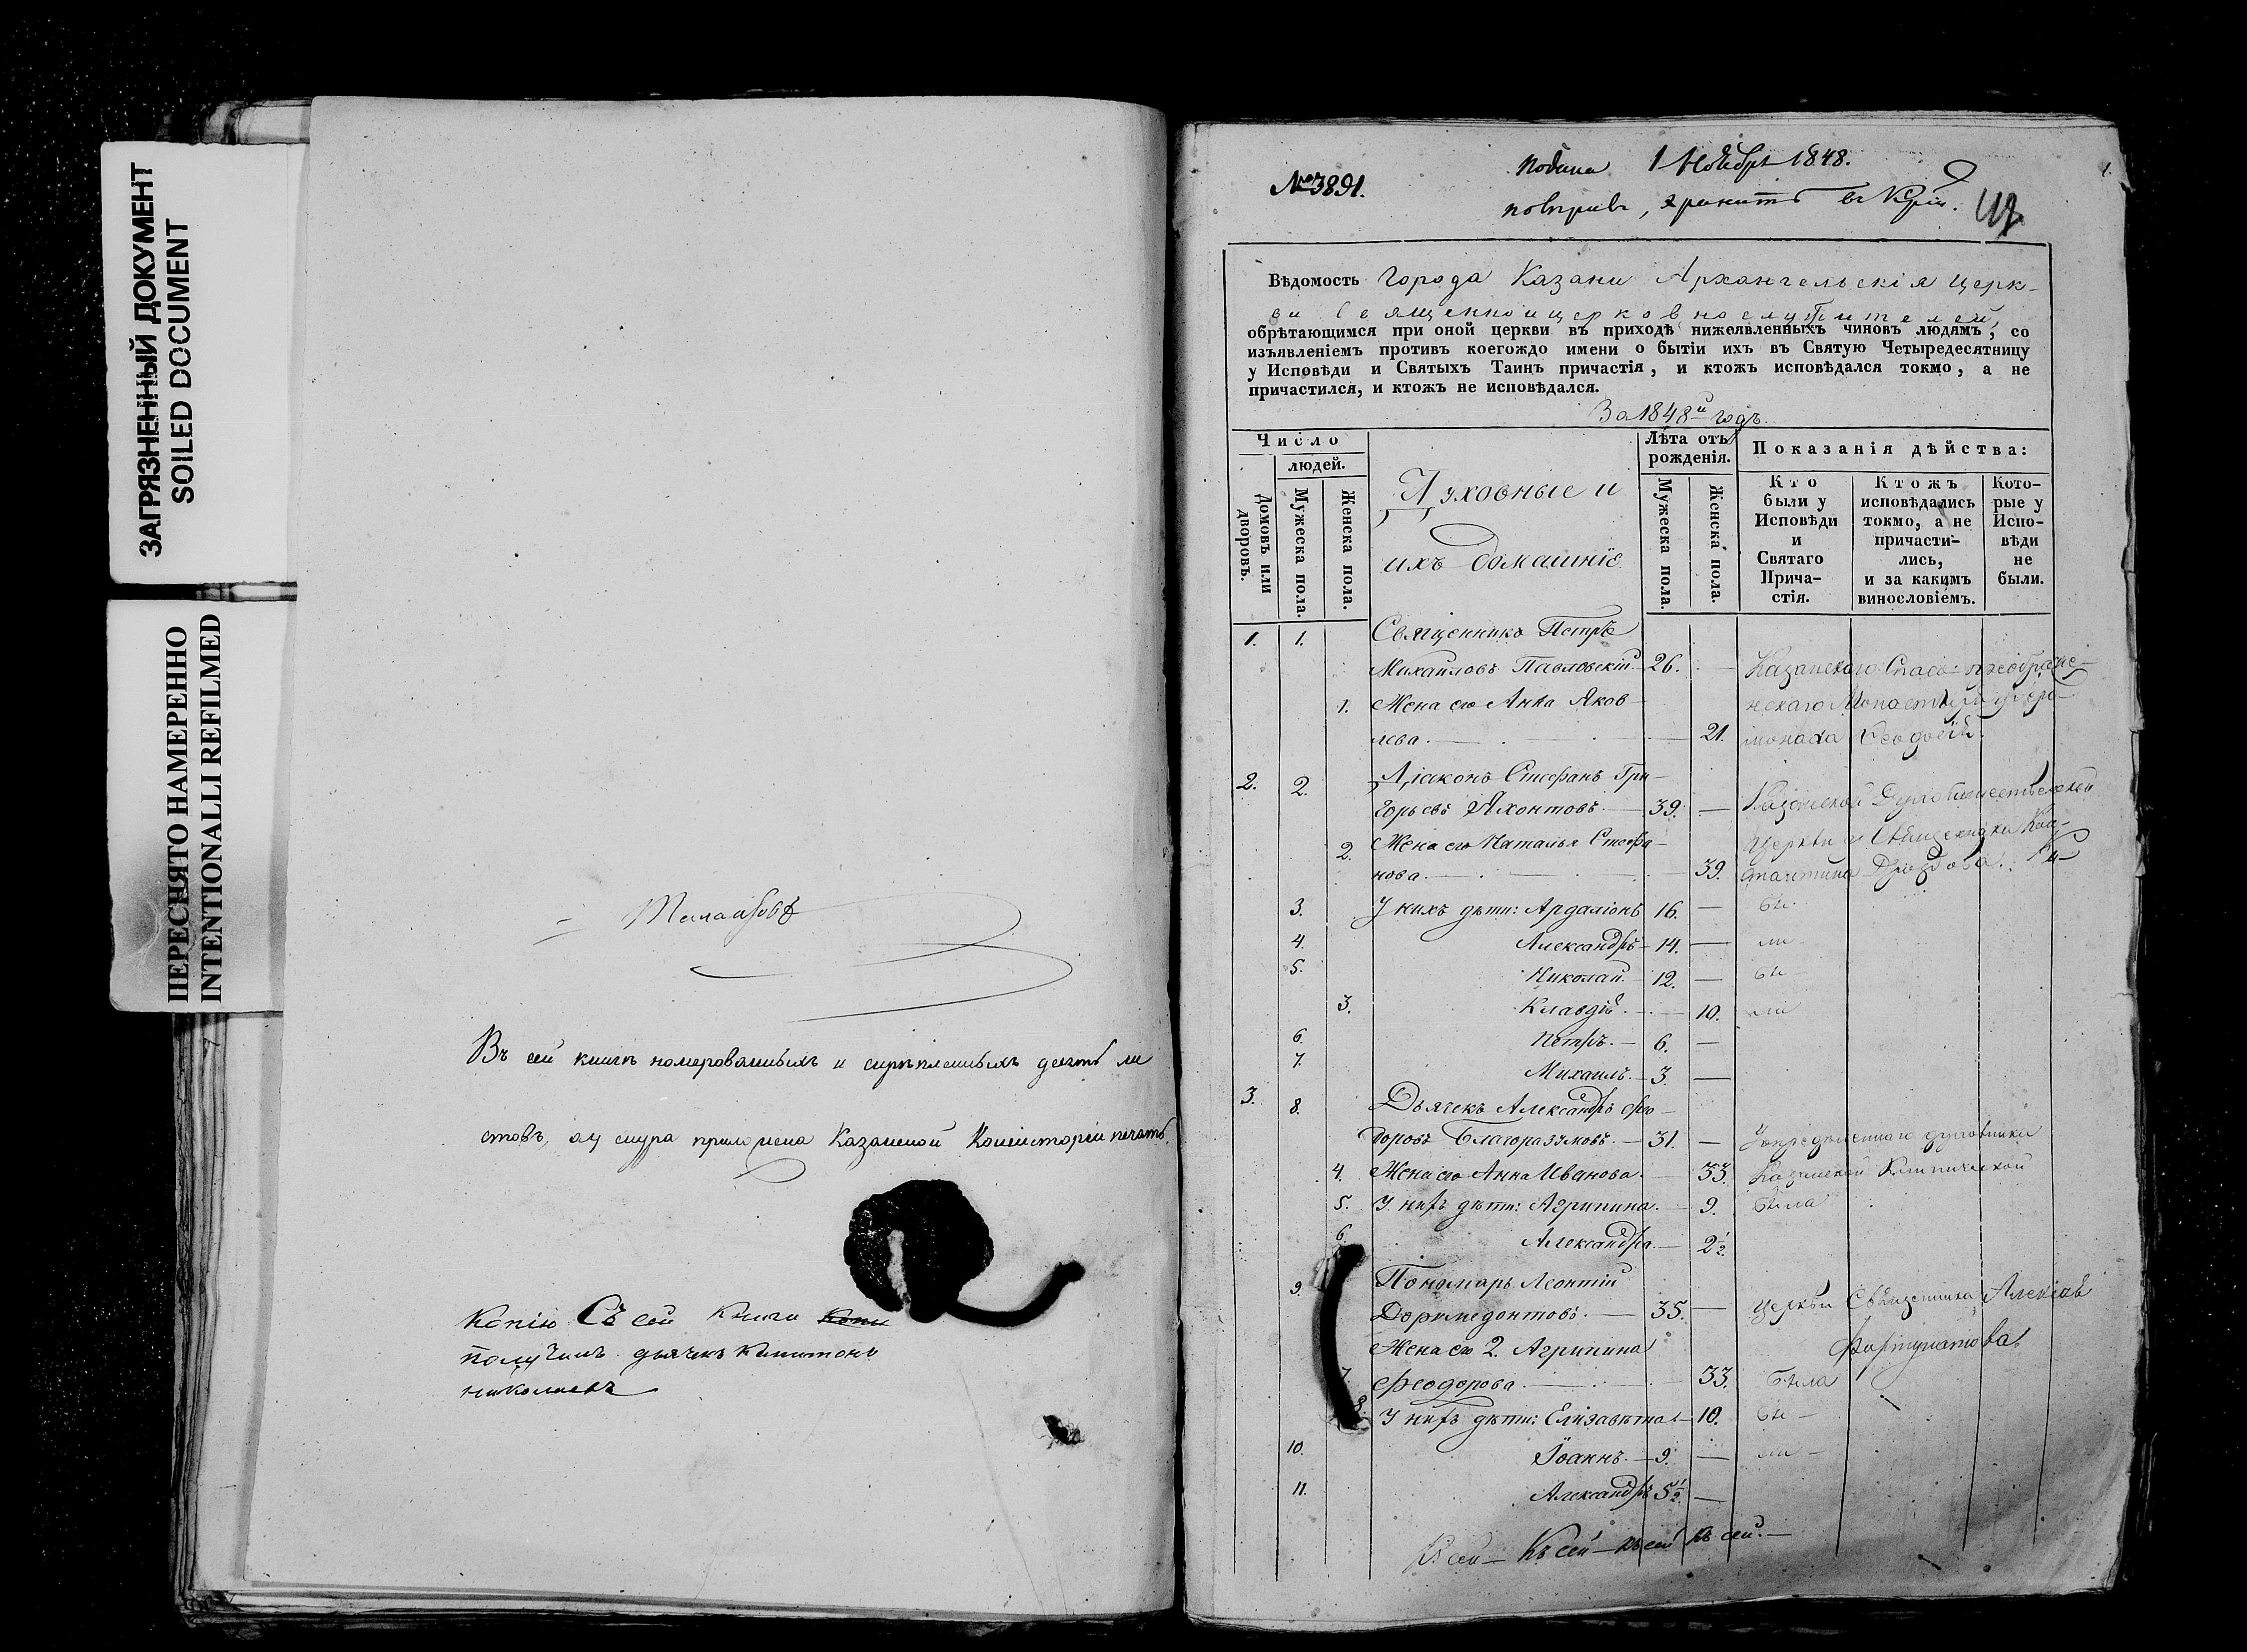 ЗАГРЯЗНЕННЫЙ ДОКУМЕНТ
SOILED DOCUMENT
ПЕРЕСНЯТО НАМЕРЕННО
INTENTIONALLI REFILMED
Въ сей книгѣ номерованныхъ и скрѣпленныхъ десять ли
стовъ, къ шнура приложена Казанской Консисторіи печать.
Копію Съ сей книги
получилъ дьячекъ Капитонъ
Николаевъ
№ 3891.
Подана 1 Ноября 1848.
повѣривъ, хранить въ
Вѣдомость Города Казани Архангельскія церк-
ви Священноицерковнослужителей,
обрѣтающимся при оной церкви въ приходѣ нижеявленныхъ чиновъ людямъ, со
изъявленіемъ противъ коегождо имени о бытіи ихъ въ Святую Четыредесятницу
у Исповѣди и Святыхъ Таинъ причастія, и ктожъ исповѣдался токмо, а не
причастился, и ктожъ не исповѣдался.
За 1848й годъ.
Число
людей.
Домовъ или дворовъ.
Мужеска пола.
Женска пола.
Духовные и
ихъ домашніе
Лѣта отъ рожденія.
Мужеска пола.
Женска пола.
Показанія дѣйства:
Кто были у Исповѣди и Святаго Прича-стія.
Ктожъ исповѣдались токмо, а не причасти-лись, и за какимъ винословіемъ.
Кото-рые у Испо-вѣди не были.
1. 1. Священникъ Петръ
Михайловъ Павловскій 26. — Казанскаго Спасо-преображе-
1. Жена его Анна Яков- нскаго Монастыря іеро-
лева. 21. монаха Ѳеодосія.
2. 2. Діаконъ Стефанъ Гри-
горьевъ Яхонтовъ. 39. — Казанской Духосошественской
2. Жена его Наталья Стефа- Церкви Священника Кон-
нова. 39. стантина
3. У нихъ дѣти: Ардаліонъ 16. — бы-
4. Александръ 14. — ли
5. Николай 12. — бы-
3. Клавдія. 10. ли
6. Петръ. 6. —
7. Михаилъ. 3. —
3. 8. Дьячекъ Александръ Фео-
доровъ Благоразумовъ. 31. — У опредѣленнаго духовника
4. Жена его Анна Иванова. 33. Казанской Клинической
5. У нихъ дѣти: Агрипина. 9. была
6. Александра. 2½.
9. Пономарь Леонтій
Доримедонтовъ. 35. — церкви Священника Алексія
Жена его 2. Агрипина Фортунатова
7. Феодорова. 33. была
8. У нихъ дѣти: Елізавета 10. бы-
10. Іоаннъ. 9. — ли
11. Александръ 5½. —
Къ сей — Къ сей — Къ сей Къ сей. —